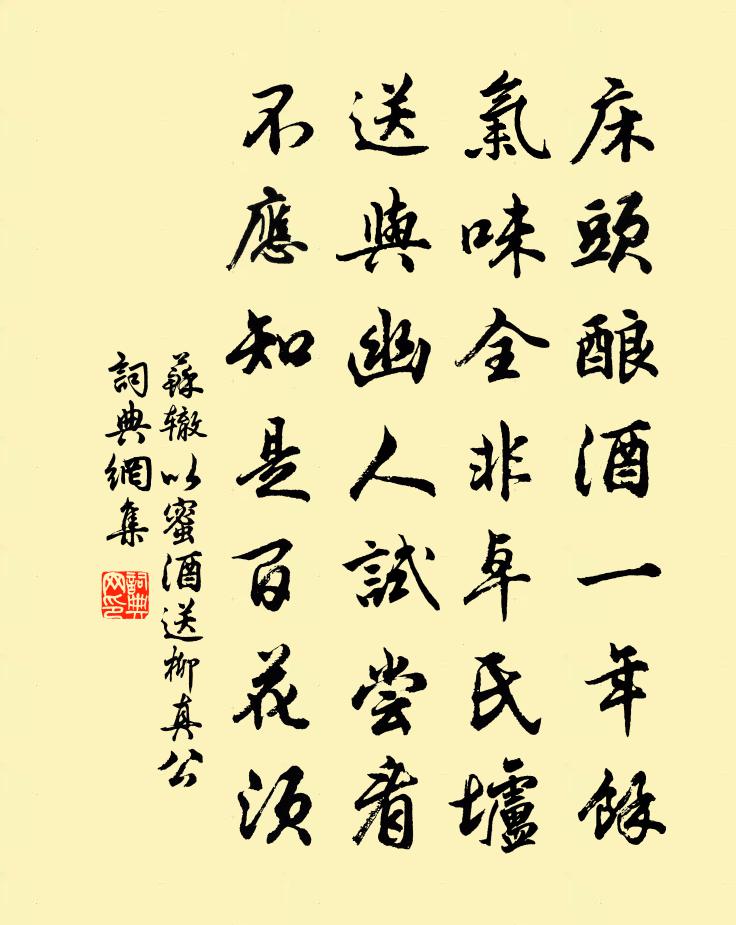 床頭酿酒一年餘
氣味全非卓氏壚
送與幽人試尝看
不應知是百花須
蘇辙以蜜酒送柳真公
詞典網集
詞典網印